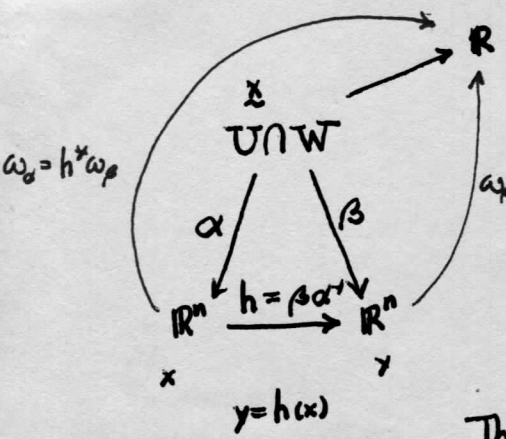 ℝ
x̰
U∩W
ω_α = h*ω_β
α
β
ℝⁿ
h = βα⁻¹
ℝⁿ
x
y
y = h(x)
Th